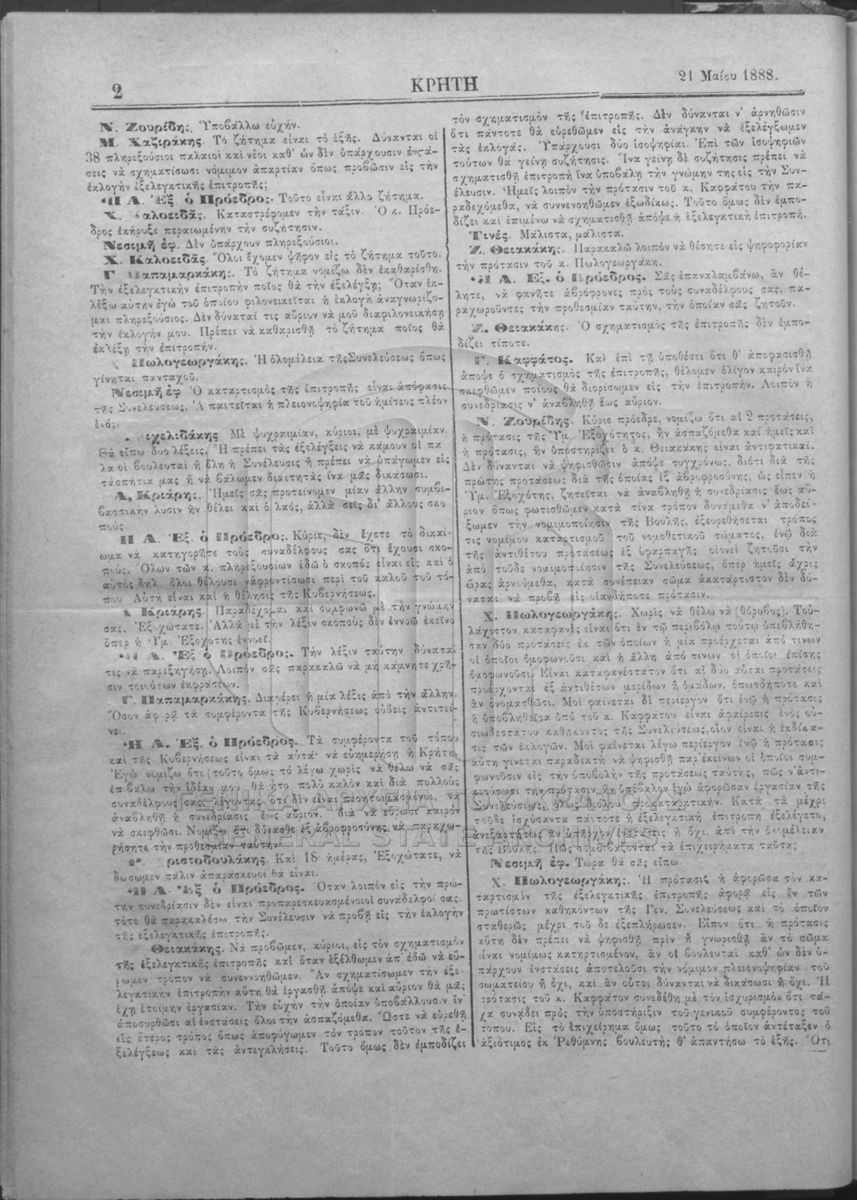 2
ΚΡΗΤΗ
21 Μαΐου 1888.
Ν. Ζουρίδης. Ὑποβάλλω εὐχήν.
Μ. Χαζιράκης. Τὸ ζήτημα εἶναι τὸ ἑξῆς. Δύνανται οἱ
38 πληρεξούσιοι παλαιοὶ καὶ νέοι καθ' ὧν δὲν ὑπάρχουσιν ἐνστά-
σεις νὰ σχηματίσωσι νόμιμον ἀπαρτίαν ὅπως προβῶσιν εἰς τὴν
ἐκλογὴν ἐξελεγκτικῆς ἐπιτροπῆς;
Ἡ Α. Ἐξ ὁ Πρόεδρος. Τοῦτο εἶναι ἄλλο ζήτημα.
Χ. Καλοειδᾶς. Καταστρέφομεν τὴν τάξιν. Ὁ κ. Πρόε-
δρος ἐκήρυξε περαιωμένην τὴν συζήτησιν.
Νεσιμῆ ἐφ. Δὲν ὑπάρχουν πληρεξούσιοι.
Χ. Καλοειδᾶς. Ὅλοι ἔχομεν ψῆφον εἰς τὸ ζήτημα τοῦτο.
Γ Παπαμαρκάκης. Τὸ ζήτημα νομίζω δὲν ἐκαθαρίσθη.
Τὴν ἐξελεγκτικὴν ἐπιτροπὴν ποῖος θὰ τὴν ἐξελέγξῃ; Ὅταν ἐκ-
λέξω αὐτὴν ἐγὼ τοῦ ὁποίου φιλονεικεῖται ἡ ἐκλογὴ ἀναγνωρίζο-
μαι πληρεξούσιος. Δὲν δύναταί τις αὔριον νὰ μοῦ διαφιλονεικήσῃ
τὴν ἐκλογήν μου. Πρέπει νὰ καθαρισθῇ τὸ ζήτημα ποῖος θὰ
ἐκλέξῃ τὴν ἐπιτροπήν.
Πωλογεωργάκης. Ἡ ὁλομέλεια τῆς Συνελεύσεως ὅπως
γίνηται πανταχοῦ.
Νεσιμῆ ἐφ Ὁ καταρτισμὸς τῆς ἐπιτροπῆς εἶναι ἀπόφασις
τῆς Συνελεύσεως. Ἀπαιτεῖται ἡ πλειονοψηφία τοῦ ἡμίσεος πλέον
ἑνός.
εχελιδάκης Μὲ ψυχραιμίαν, κύριοι, μὲ ψυχραιμίαν.
Θὰ εἴπω δύο λέξεις. Ἢ πρέπει τὰς ἐξελέγξεις νὰ κάμουν οἱ πα-
λαιοὶ βουλευταὶ ἢ ὅλη ἡ Συνέλευσις ἢ πρέπει νὰ ὑπάγωμεν εἰς
τὰ σπήτια μας ἢ νὰ βάλωμεν διαιτητὰς ἵνα μᾶς δικάσωσι.
Α. Κριάρης. Ἡμεῖς σᾶς προτείνομεν μίαν ἄλλην συμβι-
βαστικὴν λύσιν ἣν θέλει καὶ ὁ λαός, ἀλλὰ σεῖς δι' ἄλλους σκο-
πούς.
Ἡ Α. Ἐξ. ὁ Πρόεδρος. Κύριε, δὲν ἔχετε τὸ δικαί-
ωμα νὰ κατηγορῆτε τοὺς συναδέλφους σας ὅτι ἔχουσι σκο-
πούς. Ὅλων τῶν κ. πληρεξουσίων ἐδῶ ὁ σκοπὸς εἶναι εἷς καὶ ὁ
αὐτὸς δηλ. ὅλοι θέλουσι νὰ φροντίσωσι περὶ τοῦ καλοῦ τοῦ τό-
που Αὐτὴ εἶναι καὶ ἡ θέλησις τῆς Κυβερνήσεως.
Κριάρης. Παραδέχομαι καὶ συμφωνῶ μὲ τὴν γνώμην
σας, Ἐξοχώτατε. Ἀλλὰ μὲ τὴν λέξιν σκοποὺς δὲν ἐννοῶ ἐκεῖνο
ὅπερ ἡ Ὑμ. Ἐξοχότης ἐννοεῖ.
Ἡ Α. Ἐξ ὁ Πρόεδρος. Τὴν λέξιν ταύτην δύναταί
τις νὰ παρεξηγήσῃ. Λοιπὸν σᾶς παρακαλῶ νὰ μὴ κάμνητε χρῆ-
σιν τοιούτων ἐκφράσεων.
Γ. Παπαμαρκάκης. Διαφέρει ἡ μία λέξις ἀπὸ τὴν ἄλλην.
Ὅσον ἀφορᾷ τὰ συμφέροντα τῆς Κυβερνήσεως οὐδεὶς ἀντιτεί-
νει.
Ἡ Α. Ἐξ. ὁ Πρόεδρος. Τὰ συμφέροντα τοῦ τόπου
καὶ τῆς Κυβερνήσεως εἶναι τὰ αὐτὰ· νὰ εὐημερήσῃ ἡ Κρήτη.
Ἐγὼ νομίζω ὅτι (τοῦτο ὅμως τὸ λέγω χωρὶς νὰ θέλω νὰ σᾶς
ἐπιβάλω τὴν ἰδέαν μου) θὰ ἦτο πολὺ καλὸν καὶ διὰ πολλοὺς
συναδέλφους σας λέγοντας ὅτι δὲν εἶναι προητοιμασμένοι, νὰ
ἀναβληθῇ ἡ συνεδρίασις ἕως αὔριον, διὰ νὰ εὕρωσι καιρὸν
νὰ σκεφθῶσι. Νομίζω ὅτι δύνασθε ἐξ ἁβροφροσύνης νὰ παραχω-
ρήσητε τὴν προθεσμίαν ταύτην.
ριστοβουλάκης. Καὶ 18 ἡμέρας, Ἐξοχώτατε, νὰ
δώσωμεν πάλιν ἀπαράσκευοι θὰ εἶναι.
Ἡ Α. Ἐξ ὁ Πρόεδρος. Ὅταν λοιπὸν εἰς τὴν πρώ-
την συνεδρίασιν δὲν εἶναι προπαρεσκευασμένοι οἱ συνάδελφοί σας,
τότε θὰ παρακαλέσω τὴν Συνέλευσιν νὰ προβῇ εἰς τὴν ἐκλογὴν
τῆς ἐξελεγκτικῆς ἐπιτροπῆς.
Θειακάκης. Νὰ προβῶμεν, κύριοι, εἰς τὸν σχηματισμὸν
τῆς ἐξελεγκτικῆς ἐπιτροπῆς καὶ ὅταν ἐξέλθωμεν ἀπ' ἐδῶ νὰ εὕ-
ρωμεν τρόπον νὰ συνεννοηθῶμεν. Ἂν σχηματίσωμεν τὴν ἐξε-
λεγκτικὴν ἐπιτροπὴν αὐτὴ θὰ ἐργασθῇ ἀπόψε καὶ αὔριον θὰ μᾶς
ἔχῃ ἕτοιμην ἐργασίαν. Τὴν εὐχὴν τὴν ὁποίαν ὑποβάλλουσιν ἵν'
ἀποσυρθῶσι αἱ ἐνστάσεις ὅλοι τὴν ἀσπαζόμεθα. Ὥστε νὰ εὑρεθῇ
εἷς ἕτερος τρόπος ὅπως ἀποφύγωμεν τὸν τρόπον τοῦτον τῆς ἐ-
ξελέγξεως καὶ τὰς ἀντεγκλήσεις. Τοῦτο ὅμως δὲν ἐμποδίζει
τὸν σχηματισμὸν τῆς ἐπιτροπῆς. Δὲν δύνανται ν' ἀρνηθῶσιν
ὅτι πάντοτε θὰ εὑρεθῶμεν εἰς τὴν ἀνάγκην νὰ ἐξελέγξωμεν
τὰς ἐκλογάς. Ὑπάρχουσι δύο ἰσοψηφίαι. Ἐπὶ τῶν ἰσοψηφιῶν
τούτων θὰ γείνῃ συζήτησις. Ἵνα γείνῃ δὲ συζήτησις πρέπει νὰ
σχηματισθῇ ἐπιτροπὴ ἵνα ὑποβάλῃ τὴν γνώμην της εἰς τὴν Συν-
έλευσιν. Ἡμεῖς λοιπὸν τὴν πρότασιν τοῦ κ. Καφφάτου τὴν πα-
ραδεχόμεθα, νὰ συννενοηθῶμεν ἐξωδίκως. Τοῦτο ὅμως δὲν ἐμπο-
δίζει καὶ ἐπιμένω νὰ σχηματισθῇ ἀπόψε ἡ ἐξελεγκτικὴ ἐπιτροπή.
Τινές. Μάλιστα, μάλιστα.
Ζ. Θειακάκης. Παρακαλῶ λοιπὸν νὰ θέσητε εἰς ψηφοφορίαν
τὴν πρότασιν τοῦ κ. Πωλογεωργάκη.
Ἡ Α. Ἐξ. ὁ Πρόεδρος. Σᾶς ἐπαναλαμβάνω, ἂν θέ-
λητε, νὰ φανῆτε ἁβρόφρονες πρὸς τοὺς συναδέλφους σας, πα-
ραχωροῦντες τὴν προθεσμίαν ταύτην, τὴν ὁποίαν σᾶς ζητοῦν.
Ζ. Θειακάκης. Ὁ σχηματισμὸς τῆς ἐπιτροπῆς δὲν ἐμπο-
δίζει τίποτε.
Γ. Καφφάτος. Καὶ ἐπὶ τῇ ὑποθέσει ὅτι θ' ἀποφασισθῇ
ἀπόψε ὁ σχηματισμὸς τῆς ἐπιτροπῆς, θέλομεν ὀλίγον καιρὸν ἵνα
σκεφθῶμεν ποίους θὰ διορίσωμεν εἰς τὴν ἐπιτροπήν. Λοιπὸν ἡ
συνεδρίασις ν' ἀναβληθῇ ἕως αὔριον.
Ν. Ζουρίδης. Κύριε πρόεδρε, νομίζω ὅτι αἱ 2 προτάσεις,
ἡ πρότασις τῆς Ὑμ. Ἐξοχότητος, ἣν ἀσπαζόμεθα καὶ ἡμεῖς καὶ
ἡ πρότασις, ἣν ὑποστηρίζει ὁ κ. Θειακάκης εἶναι ἀντιφατικαί.
Δὲν δύνανται νὰ ψηφισθῶσιν ἀπόψε συγχρόνως, διότι διὰ τῆς
πρώτης προτάσεως διὰ τῆς ὁποίας ἐξ ἁβροφροσύνης, ὡς εἶπεν ἡ
Ὑμ. Ἐξοχότης, ζητεῖται νὰ ἀναβληθῇ ἡ συνεδρίασις ἕως αὔ-
ριον ὅπως φωτισθῶμεν κατὰ τίνα τρόπον δυνάμεθα ν' ἀποδεί-
ξωμεν τὴν νομιμοποίησιν τῆς Βουλῆς, ἐξευρεθήσεται τρόπος
τις νομίμου καταρτισμοῦ τοῦ νομοθετικοῦ σώματος, ἐνῷ διὰ
τῆς ἀντιθέτου προτάσεως ἐξ ὑφαρπαγῆς οἱονεὶ ζητοῦσι τὴν
ἀπὸ τοῦδε νομιμοποίησιν τῆς Συνελεύσεως, ὅπερ ἡμεῖς ἄχρις
ὥρας ἀρνούμεθα, κατὰ συνέπειαν σῶμα ἀκατάρτιστον δὲν δύ-
ναται νὰ προβῇ εἰς οἱανδήποτε πρότασιν.
Χ. Πωλογεωργάκης. Χωρὶς νὰ θέλω νὰ (θόρυβος). Τοὐ-
λάχιστον καταφανὲς εἶναι ὅτι ἐν τῷ περιβόλῳ τούτῳ ὑπεβλήθη-
σαν δύο προτάσεις ἐκ τῶν ὁποίων ἡ μία προέρχεται ἀπό τινων
οἱ ὁποῖοι ὁμοφωνοῦσι καὶ ἡ ἄλλη ἀπό τινων οἱ ὁποῖοι ἐπίσης
ὁμοφωνοῦσι. Εἶναι καταφανέστατον ὅτι αἱ δύο αὗται προτάσεις
προέρχονται ἐξ ἀντιθέτων μερίδων ἢ ὁμάδων, ὁπωσδήποτε καὶ
ἂν ὀνομασθῶσι. Μοὶ φαίνεται δὲ περίεργον ὅτι ἐνῷ ἡ πρότασις
ἡ ὑποβληθεῖσα ὑπὸ τοῦ κ. Καφφάτου εἶναι ἀφαίρεσις ἑνὸς οὐ-
σιωδεστάτου καθήκοντος τῆς Συνελεύσεως, οἷον εἶναι ἡ ἐκδίκα-
σις τῶν ἐκλογῶν. Μοὶ φαίνεται λέγω περίεργον ἐνῷ ἡ πρότασις
αὕτη γίνεται παραδεκτὴ νὰ ψηφισθῇ παρ' ἐκείνων οἱ ὁποῖοι συμ-
φωνοῦσιν εἰς τὴν ὑποβολὴν τῆς προτάσεως ταύτης, πῶς ν' ἀντι-
κρούσωσι τὴν πρότασιν, ἣν ὑπέβαλον ἐγὼ ἀφορῶσαν ἐργασίαν τῆς
Συνελεύσεως ὅλως διόλου προκαταρκτικήν. Κατὰ τὰ μέχρι
τοῦδε ἰσχύσαντα πάντοτε ἡ ἐξελεγκτικὴ ἐπιτροπὴ ἐξελέγετο,
ἀνεξαρτήτως ἂν ὑπῆρχον ἐνστάσεις ἢ ὄχι, ἀπὸ τὴν ὁλομέλειαν
τῆς Βουλῆς. Πῶς συμβιβάζονται τὰ ἐπιχειρήματα ταῦτα;
Νεσιμῆ ἐφ. Τώρα θὰ σᾶς εἴπω.
Χ. Πωλογεωργάκης. Ἡ πρότασις ἡ ἀφορῶσα τὸν κα-
ταρτισμὸν τῆς ἐξελεγκτικῆς ἐπιτροπῆς ἀφορᾷ εἰς ἓν τῶν
πρωτίστων καθηκόντων τῆς Γεν. Συνελεύσεως καὶ τὸ ὁποῖον
σταθερῶς μέχρι τοῦδε ἐξεπλήρωσεν. Εἶπον ὅτι ἡ πρότασις
αὕτη δὲν πρέπει νὰ ψηφισθῇ πρὶν ἢ γνωρισθῇ ἂν τὸ σῶμα
εἶναι νομίμως κατηρτισμένον, ἂν οἱ βουλευταὶ καθ' ὧν δὲν ὑ-
πάρχουν ἐνστάσεις ἀποτελοῦσι τὴν νόμιμον πλειονοψηφίαν τοῦ
σωματείου ἢ ὄχι, καὶ ἂν οὗτοι δύνανται νὰ δικάσωσι ἢ ὄχι. Ἡ
πρότασις τοῦ κ. Καφφάτου συνεδέθη μὲ τὸν ἰσχυρισμὸν ὅτι τά-
χα συνάδει πρὸς τὴν ὑποστήριξιν τοῦ γενικοῦ συμφέροντος τοῦ
τόπου. Εἰς τὸ ἐπιχείρημα ὅμως τοῦτο τὸ ὁποῖον ἀντέταξεν ὁ
ἀξιότιμος ἐκ Ῥεθύμνης βουλευτὴς θ' ἀπαντήσω τὸ ἑξῆς. Ὅτι